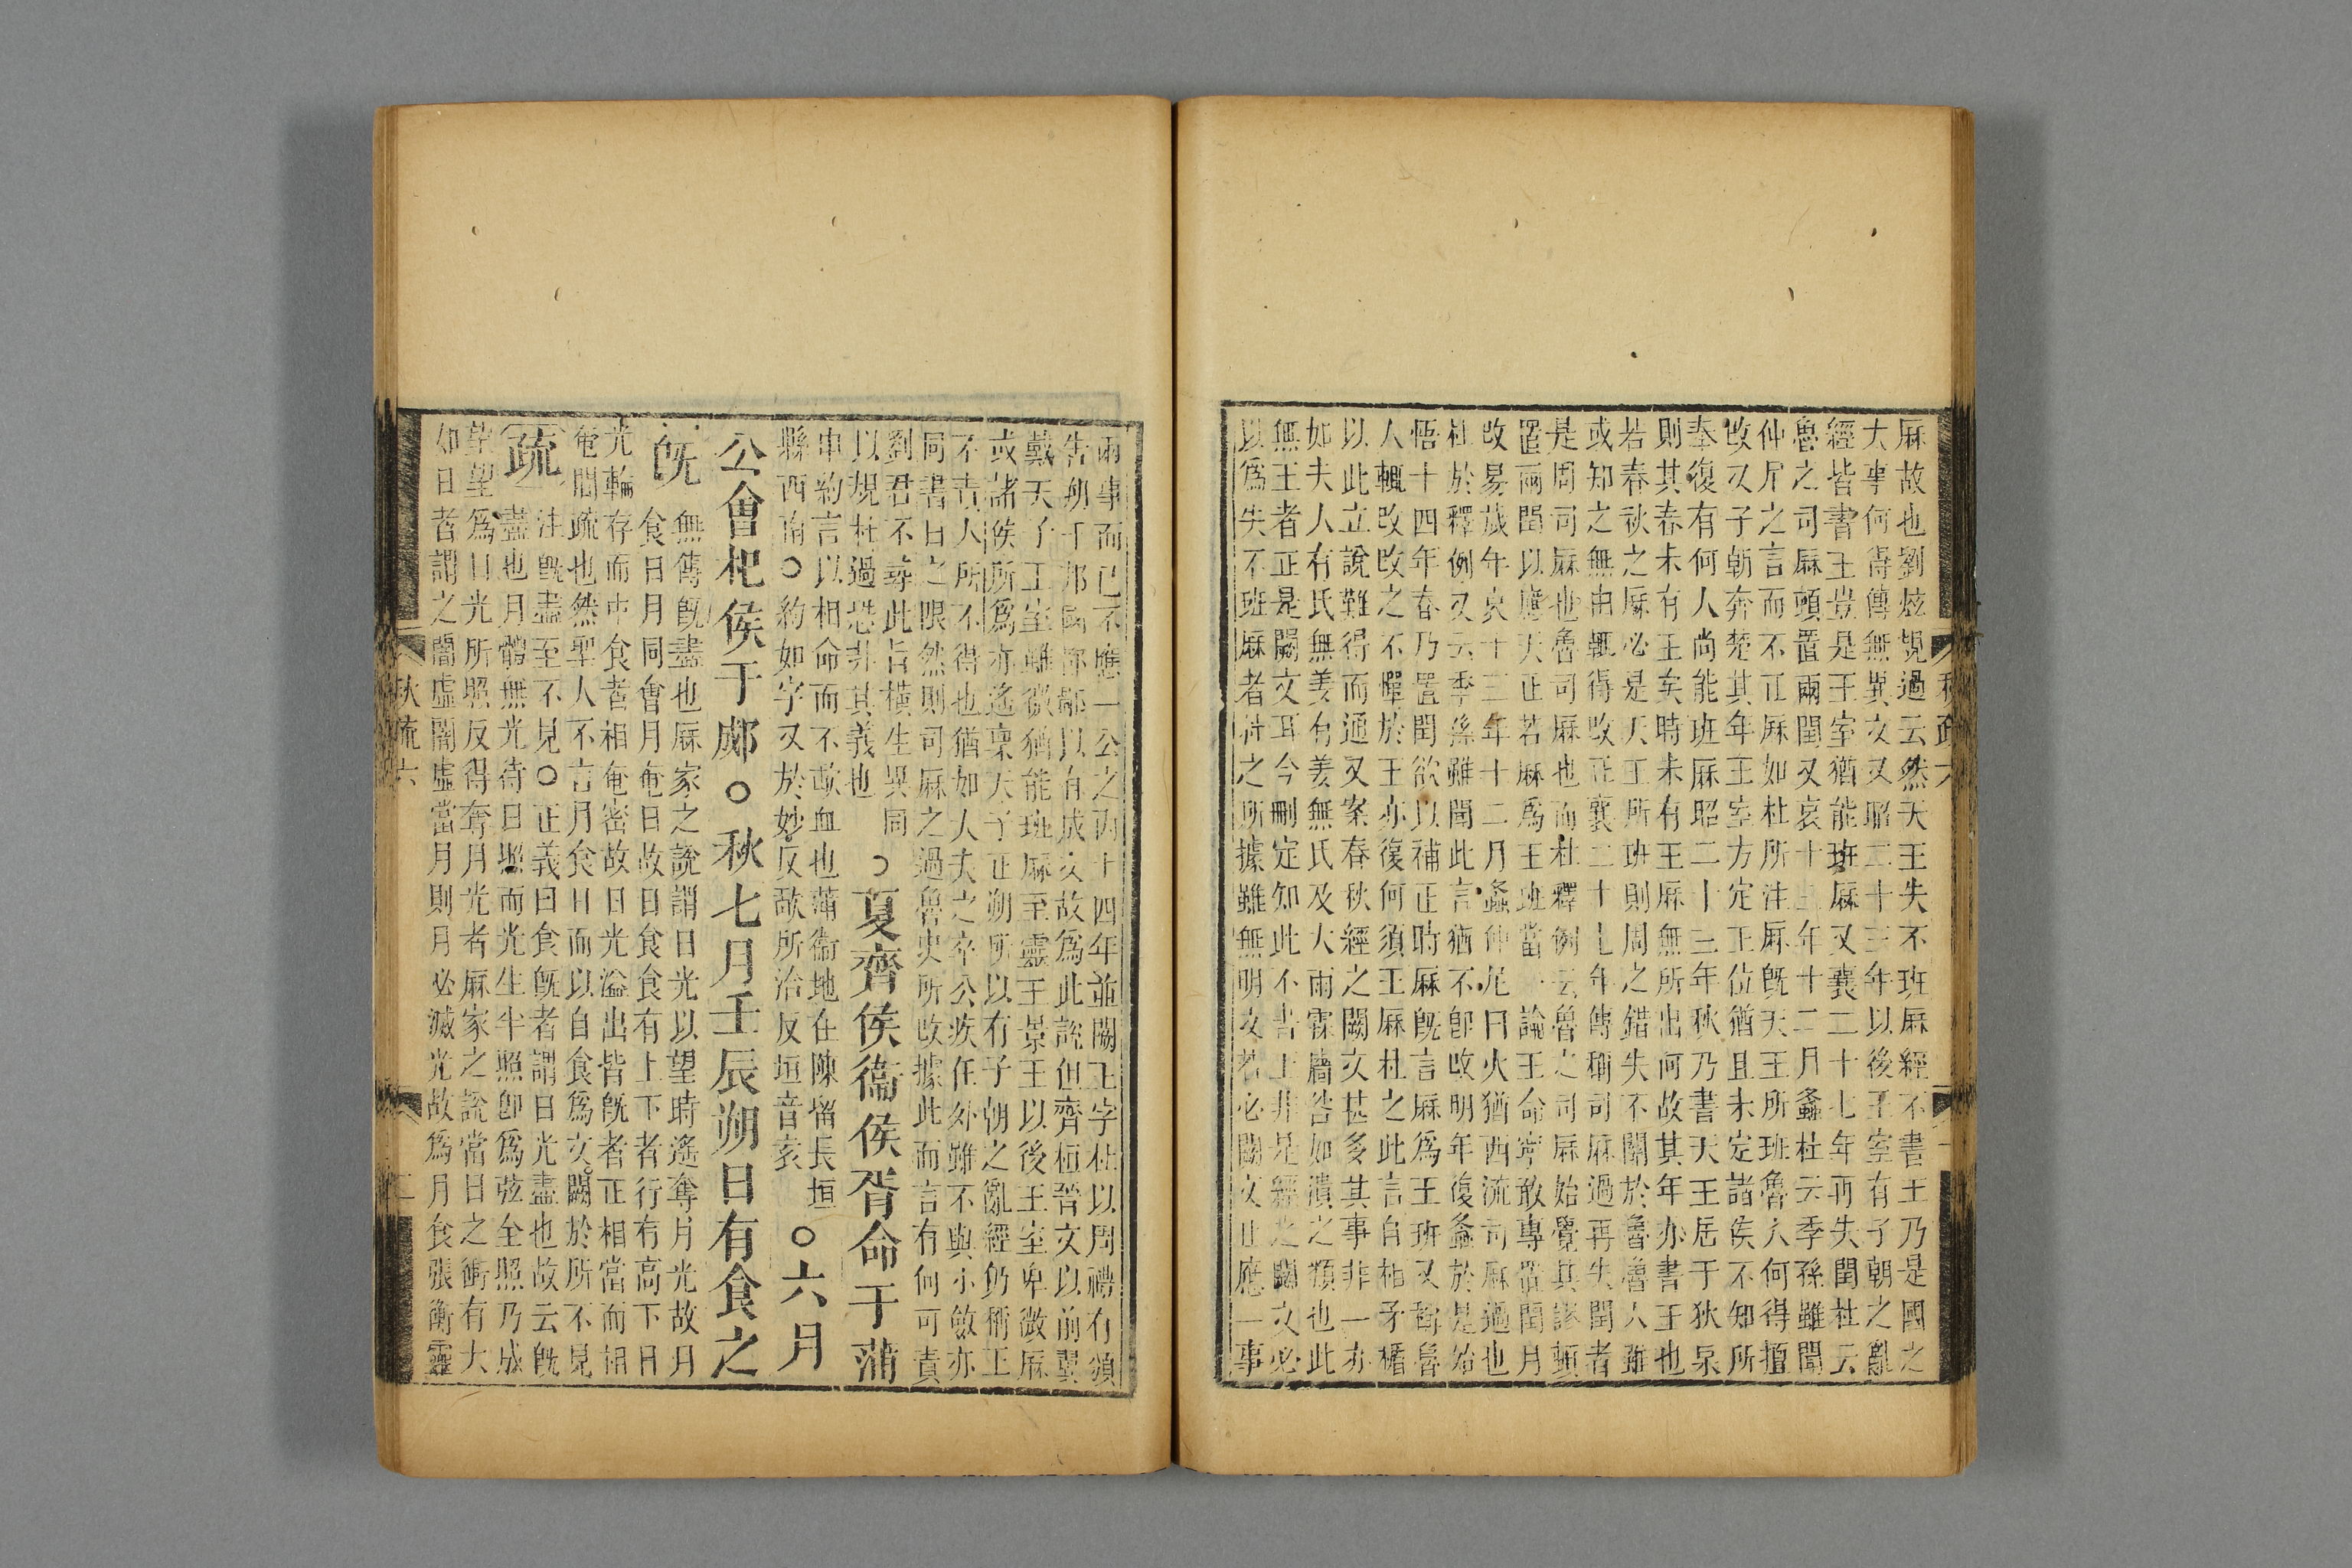 厤故也劉炫規過云然天王失不班厤經不書王乃是國之
大事何得傳無異文又昭二十三年以後王室有子朝之亂
經皆書王豈是王室猶能班厤又襄二十七年再失閏杜云
魯之司厤頓置兩閏又哀十三年十二月螽杜云季孫雖聞
仲尼之言而不正厤如杜所注厤旣天王所班魯人何得擅
改又子朝奔楚其年王室方定王位猶且未定諸侯不知所
奉復有何人尚能班厤昭二十三年秋乃書天王居于狄泉
則其春未有王矣時未有王厤無所出何故其年亦書王也
若春秋之厤必是天王所班則周之錯失不關於魯魯人雖
或知之無由輒得改正襄二十七年傳稱司厤過再失閏者
是周司厤也魯司厤也而杜釋例云魯之司厤始覺其謬頓
置兩閏以應天正若厤爲王班當一論王命寧敢專置閏月
改易歲年哀十三年十二月螽仲尼曰火猶西流司厤過也
杜於釋例又云季孫雖聞此言猶不卽改明年復螽於是始
悟十四年春乃置閏欲以補正時厤旣言厤爲王班又稱魯
人輒改改之不憚於王亦復何須王厤杜之此言自相矛楯
以此立說難得而通又案春秋經之闕文甚多其事非一亦
如夫人有氏無姜有姜無氏及大雨霖廧咎如潰之類也此
無王者正是闕文耳今刪定知此不書王非是經之闕文必
以爲失不班厤者杜之所據雖無明文若必闕文止應一事
兩事而已不應一公之內十四年並闕王字杜以周禮有頒
告朔于邦國都鄙以有成文故爲此說但齊桓晉文以前翼
戴天子王室雖微猶能班厤至靈王景王以後王室卑微厤
或諸侯所爲亦遙稟天子正朔所以有子朝之亂經仍稱王
不責人所不得也猶如大夫之卒公疾在外雖不與小斂亦
同書日之限然則司厤之過魯史所改據此而言有何可責
劉君不尋此旨橫生異同
以規杜過恐非其義也
○夏齊侯衞侯胥命于蒲
申約言以相命而不歃血也蒲衞地在陳留長垣
縣西南○約如字又於妙反歃所洽反垣音袁
○六月
公會杞侯于郕○秋七月壬辰朔日有食之
旣
無傳旣盡也厤家之說謂日光以望時遙奪月光故月
食日月同會月奄日故日食食有上下者行有高下日
光輪存而中食者相奄密故日光溢出皆旣者正相當而相
奄間疏也然聖人不言月食日而以自食爲文闕於所不見
疏
注旣盡至不見○正義曰食旣者謂日光盡也故云旣
盡也月體無光待日照而光生半照卽爲弦全照乃成
望望爲日光所照反得奪月光者厤家之說當日之衝有大
如日者謂之闇虛闇虛當月則月必滅光故爲月食張衡靈
秋疏六
二